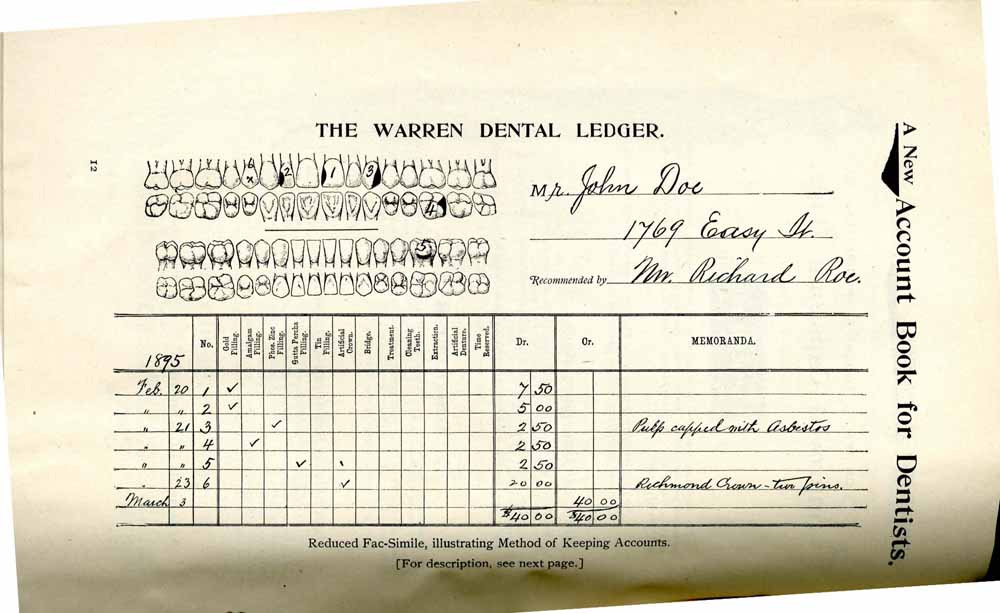 THE WARREN DENTAL LEDGER.
12
6 x 2 1 3
4
5
Mr. John Doe
1769 Easy St.
Recommended by Mr. Richard Roe.
A New Account Book for Dentists.
1895 No. Gold Filling. Amalgam Filling. Phos. Zinc Filling. Gutta Percha Filling. Tin Filling. Artificial Crown. Bridge. Treatment. Cleaning Teeth. Extraction. Artificial Denture. Time Reserved. Dr. Cr. MEMORANDA.
Feb. 20 1 ✓ 7 50
" " 2 ✓ 5 00
" 21 3 ✓ 2 50 Pulp capped with Asbestos
" " 4 ✓ 2 50
" " 5 ✓ 2 50
" 23 6 ✓ 20 00 Richmond Crown - two pins.
March 3 40 00
$40 00 $40 00
Reduced Fac-Simile, illustrating Method of Keeping Accounts.
[For description, see next page.]